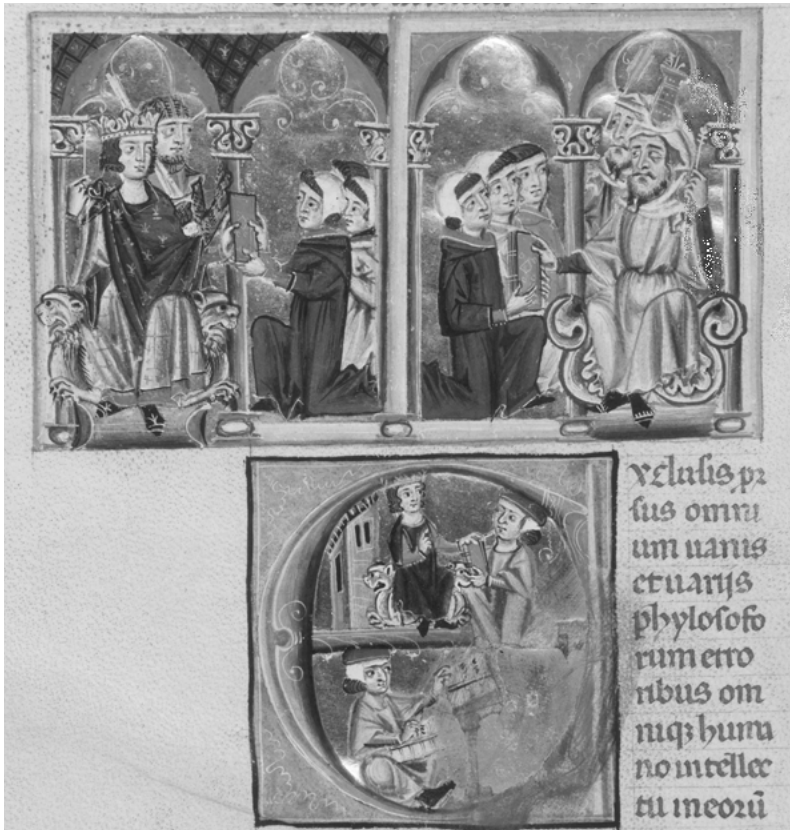 xclusis pr
sus omni
um uanis
et uarijs
phylosofo
rum erro
ribus om
niqꝫ huma
no intellec
tu in eoꝝ